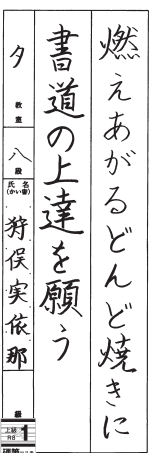 燃えあがるどんど焼きに
書道の上達を願う
夕 教室
八 段
氏名
(かい書)
狩俣実依那
級
上級
R8
1